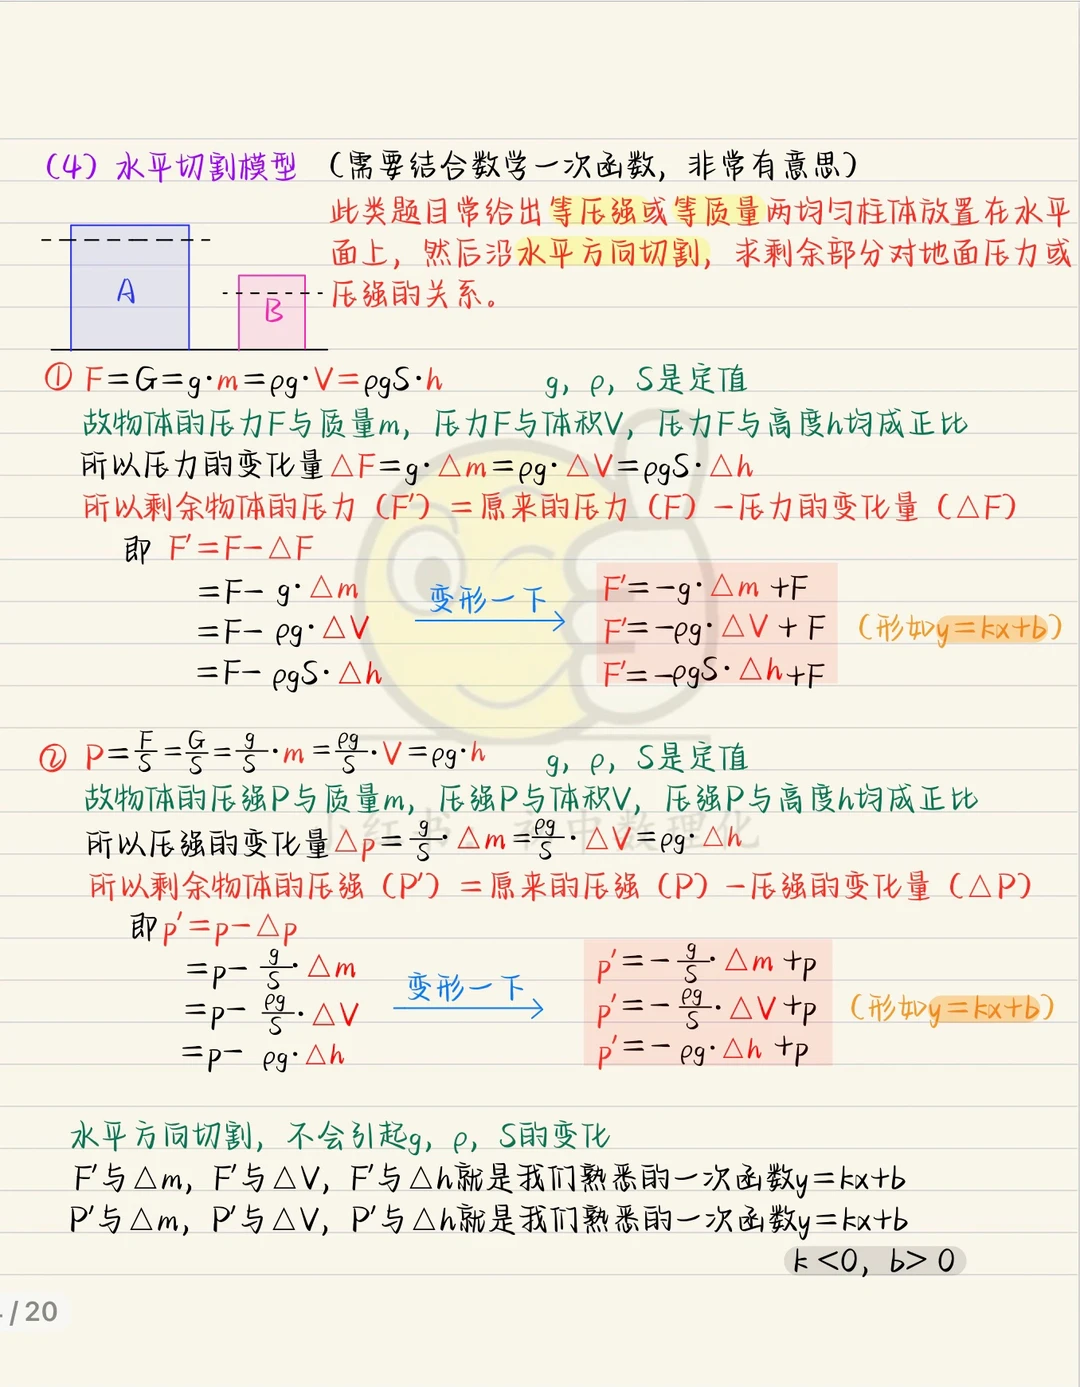 （4）水平切割模型 （需要结合数学一次函数，非常有意思）
此类题目常给出等压强或等质量两均匀柱体放置在水平
面上，然后沿水平方向切割，求剩余部分对地面压力或
压强的关系。
A
B
① F=G=g·m=ρg·V=ρgS·h g，ρ，S是定值
故物体的压力F与质量m，压力F与体积V，压力F与高度h均成正比
所以压力的变化量△F=g·△m=ρg·△V=ρgS·△h
所以剩余物体的压力（F′）=原来的压力（F）-压力的变化量（△F）
即 F′=F-△F
=F- g·△m
=F- ρg·△V
=F- ρgS·△h
变形一下
F′=-g·△m+F
F′=-ρg·△V+F
F′=-ρgS·△h+F
（形如y=kx+b）
② P=F/S=G/S=g/S·m=ρg/S·V=ρg·h g，ρ，S是定值
故物体的压强P与质量m，压强P与体积V，压强P与高度h均成正比
所以压强的变化量△p=g/S·△m=ρg/S·△V=ρg·△h
所以剩余物体的压强（P′）=原来的压强（P）-压强的变化量（△P）
即p′=p-△p
=p- g/S·△m
=p- ρg/S·△V
=p- ρg·△h
变形一下
p′=-g/S·△m+p
p′=-ρg/S·△V+p
p′=-ρg·△h+p
（形如y=kx+b）
水平方向切割，不会引起g，ρ，S的变化
F′与△m，F′与△V，F′与△h就是我们熟悉的一次函数y=kx+b
P′与△m，P′与△V，P′与△h就是我们熟悉的一次函数y=kx+b
k<0，b>0
/20